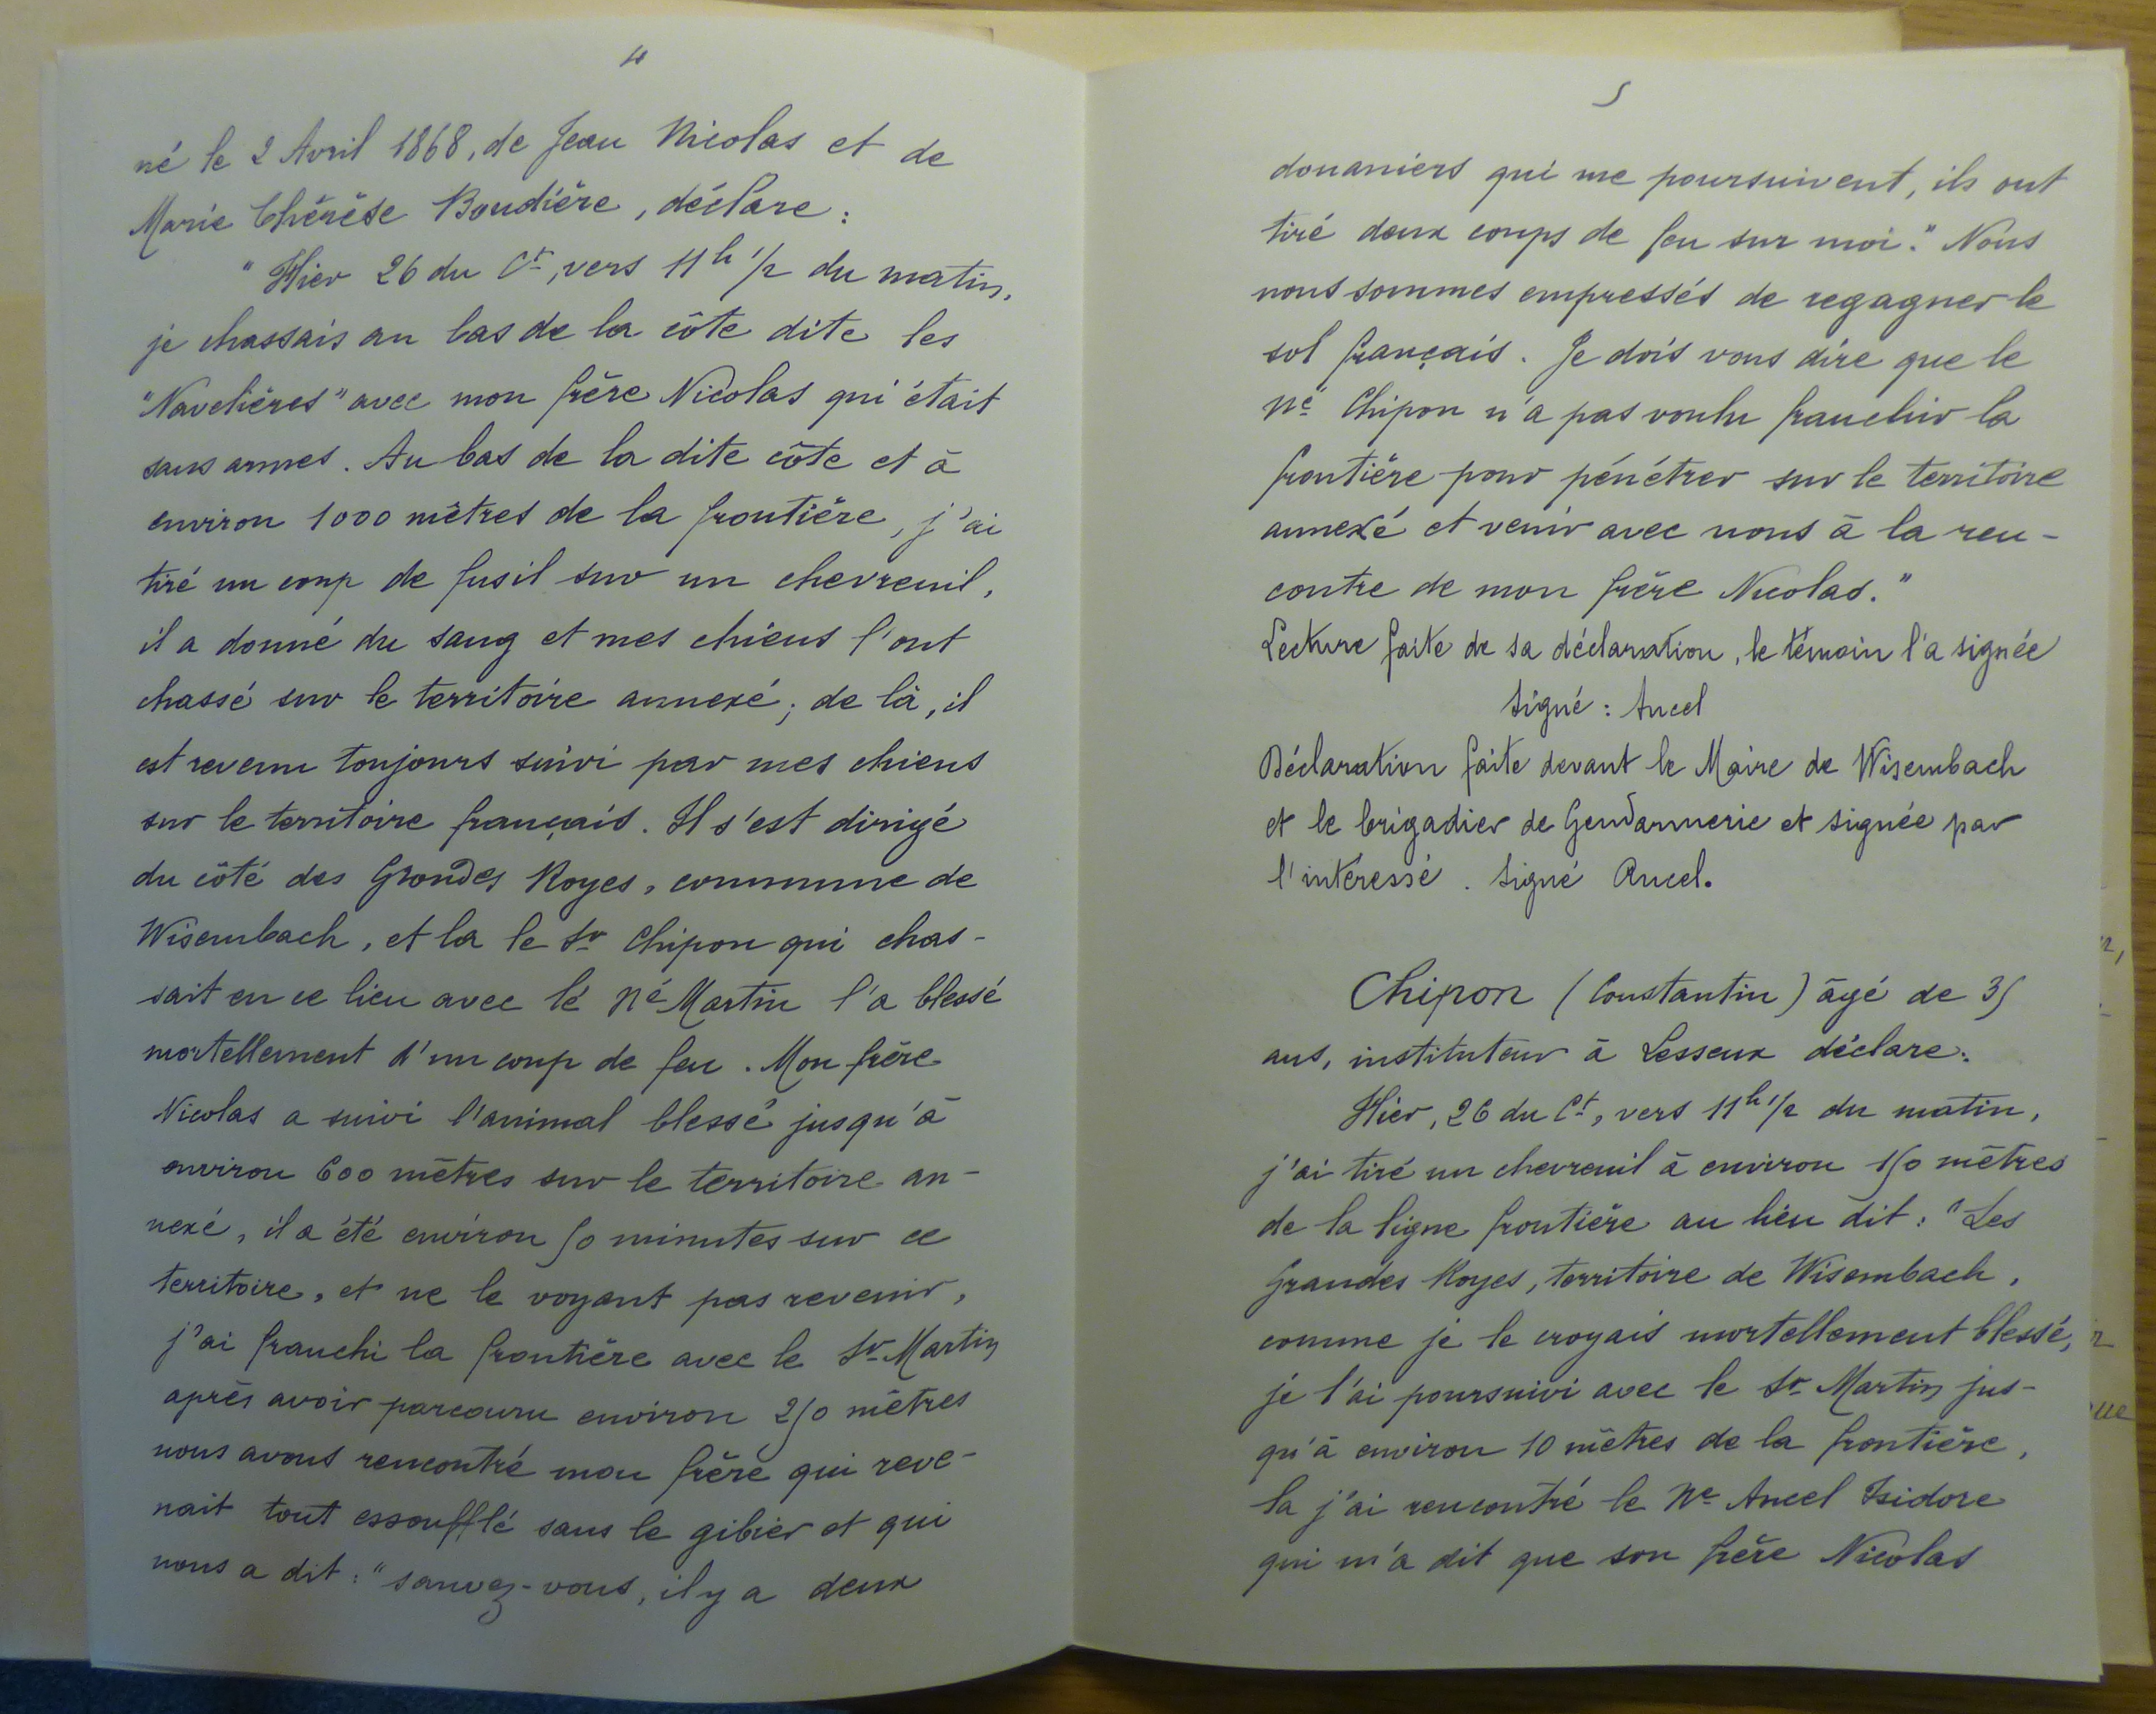 4
né le 2 Avril 1868, de Jean Nicolas et de
Marie Thérèse Boudière, déclare :
"Hier 26 du Ct, vers 11h 1/2 du matin,
je chassais au bas de la côte dite les
"Navelières" avec mon frère Nicolas qui était
sans armes. Au bas de la dite côte et à
environ 1000 mètres de la frontière, j'ai
tiré un coup de fusil sur un chevreuil,
il a donné du sang et mes chiens l'ont
chassé sur le territoire annexé ; de là, il
est revenu toujours suivi par mes chiens
sur le territoire français. Il s'est dirigé
du côté des Grandes Royes, commune de
Wisembach, et la le Sr Chipon qui chas-
sait en ce lieu avec le Né Martin l'a blessé
mortellement d'un coup de feu. Mon frère
Nicolas a suivi l'animal blessé jusqu'à
environ 600 mètres sur le territoire an-
nexé, il a été environ 50 minutes sur ce
territoire, et ne le voyant pas revenir,
j'ai franchi la frontière avec le Sr Martin
après avoir parcouru environ 250 mètres
nous avons rencontré mon frère qui reve-
nait tout essoufflé sans le gibier et qui
nous a dit : "sauvez-vous, il y a deux
5
douaniers qui me poursuivent, ils ont
tiré deux coups de feu sur moi." Nous
nous sommes empressés de regagner le
sol français. Je dois vous dire que le
Né Chipon n'a pas voulu franchir la
frontière pour pénétrer sur le territoire
annexé et venir avec nous à la ren-
contre de mon frère Nicolas."
Lecture faite de sa déclaration, le témoin l'a signée
Signé : Ancel
Déclaration faite devant le Maire de Wisembach
et le brigadier de Gendarmerie et signée par
l'intéressé. Signé Ancel.
Chipon (Constantin) âgé de 35
ans, instituteur à Lesseux déclare :
Hier, 26 du Ct, vers 11h 1/2 du matin,
j'ai tiré un chevreuil à environ 150 mètres
de la ligne frontière au lieu dit : "Les
Grandes Royes, territoire de Wisembach,
comme je le croyais mortellement blessé,
je l'ai poursuivi avec le Sr Martin jus-
qu'à environ 10 mètres de la frontière,
la j'ai rencontré le Né Ancel Isidore
qui m'a dit que son frère Nicolas